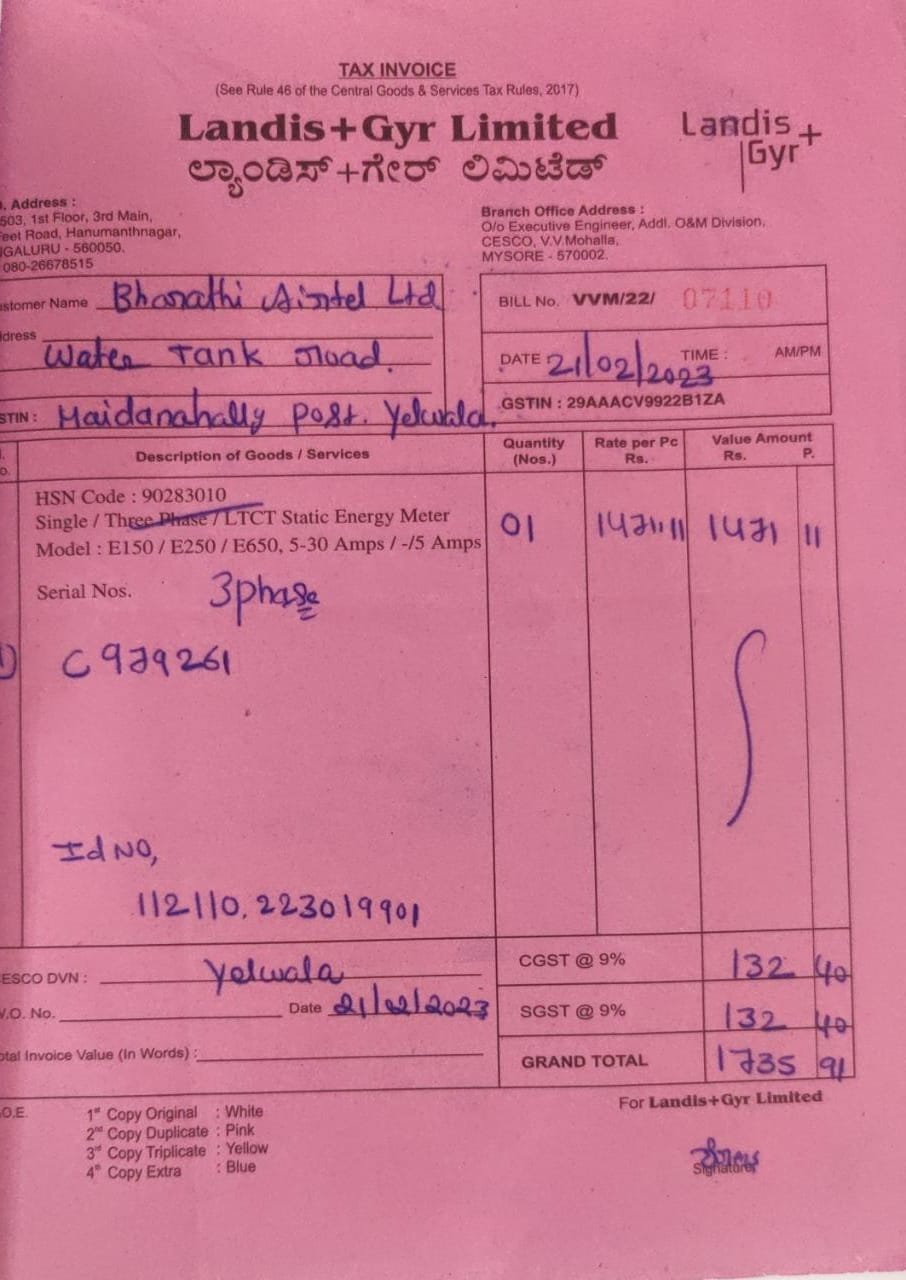 TAX INVOICE
(See Rule 46 of the Central Goods & Services Tax Rules, 2017)
Landis+Gyr Limited
ಲ್ಯಾಂಡಿಸ್+ಗೇರ್ ಲಿಮಿಟೆಡ್
Landis
Gyr+
. Address :
503, 1st Floor, 3rd Main,
eet Road, Hanumanthnagar,
GALURU - 560050.
080-26678515
Branch Office Address :
O/o Executive Engineer, Addl. O&M Division,
CESCO, V.V.Mohalla,
MYSORE - 570002.
stomer Name Bharathi Airtel Ltd
dress
Water Tank Road.
STIN : Maidanahally post. Yelwala.
BILL No. VVM/22/ 07110
DATE 21/02/2023 TIME : AM/PM
GSTIN : 29AAACV9922B1ZA
Description of Goods / Services
Quantity (Nos.)
Rate per Pc Rs.
Value Amount Rs. P.
HSN Code : 90283010
Single / Three Phase / LTCT Static Energy Meter
Model : E150 / E250 / E650, 5-30 Amps / -/5 Amps
01 1471.11 1471 11
Serial Nos. 3phase
1) C979261
Id NO,
112110.223019901
ESCO DVN : Yelwala
.O. No. Date 21/02/2023
otal Invoice Value (In Words) :
CGST @ 9% 132 40
SGST @ 9% 132 40
GRAND TOTAL 1735 91
.O.E.
1st Copy Original : White
2nd Copy Duplicate : Pink
3rd Copy Triplicate : Yellow
4th Copy Extra : Blue
For Landis+Gyr Limited
Signature